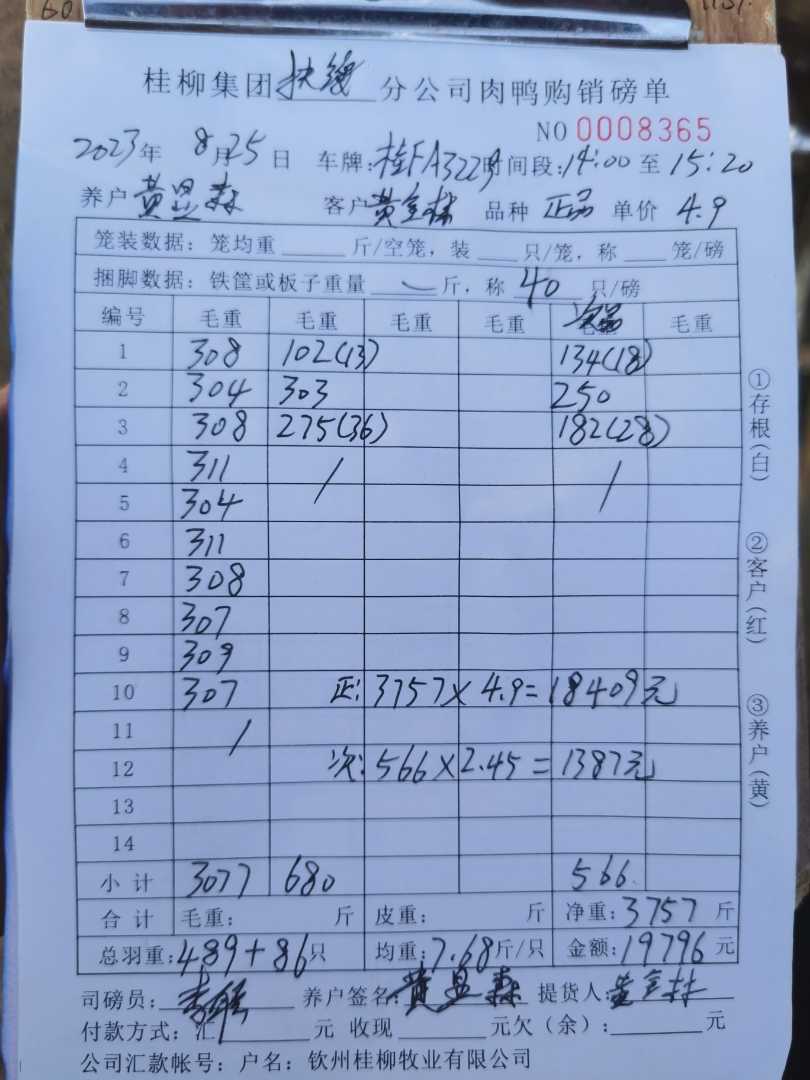 桂柳集团扶绥分公司肉鸭购销磅单
NO 0008365
2023年 8月25日 车牌:桂FA3229时间段:14:00至15:20
养户黄显森 客户黄金林 品种 正品 单价 4.9
笼装数据: 笼均重 斤/空笼, 装 只/笼, 称 笼/磅
捆脚数据: 铁筐或板子重量 斤, 称 40 只/磅
编号 毛重 毛重 毛重 毛重 次品 毛重
1 308 102(13) 134(18)
2 304 303 250
3 308 275(36) 182(28)
4 311 / /
5 304
6 311
7 308
8 307
9 309
10 307 正: 3757×4.9=18409元
11 /
12 次: 566×2.45=1387元
13
14
小计 3077 680 566
合计 毛重: 斤 皮重: 斤 净重:3757斤
总羽重:489+86只 均重:7.68斤/只 金额:19796元
司磅员: 养户签名:黄显森 提货人:黄金林
付款方式:汇 元 收现 元欠(余): 元
公司汇款帐号: 户名: 钦州桂柳牧业有限公司
①存根(白)
②客户(红)
③养户(黄)
60